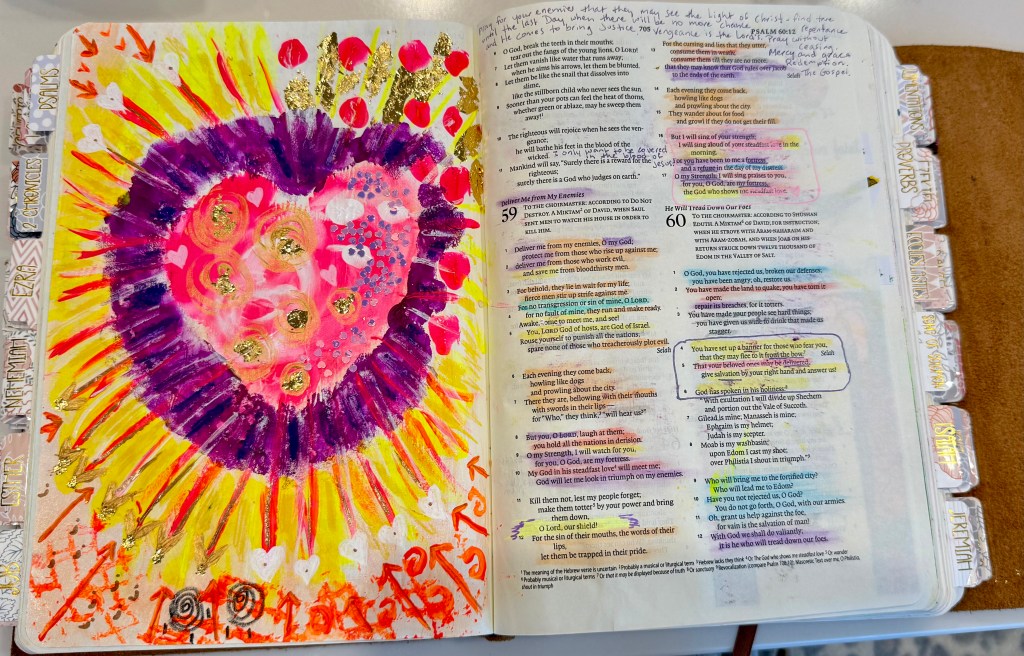 Pray for your enemies that they may see the Light of Christ - find true repentance
until the Last Day when there will be no more chance.
and He comes to bring Justice. Vengeance is the Lord's. Pray without ceasing.
Mercy and Grace
Redemption.
The Gospel.
705
PSALM 60:12
6 O God, break the teeth in their mouths;
tear out the fangs of the young lions, O LORD!
7 Let them vanish like water that runs away;
when he aims his arrows, let them be blunted.
8 Let them be like the snail that dissolves into
slime,
like the stillborn child who never sees the sun.
9 Sooner than your pots can feel the heat of thorns,
whether green or ablaze, may he sweep them
away!¹
10 The righteous will rejoice when he sees the ven-
geance;
he will bathe his feet in the blood of the
wicked.
I only want to be covered
in the blood of Jesus
11 Mankind will say, "Surely there is a reward for the
righteous;
surely there is a God who judges on earth."
Deliver Me from My Enemies
59 TO THE CHOIRMASTER: ACCORDING TO DO NOT
DESTROY. A MIKTAM² OF DAVID, WHEN SAUL
SENT MEN TO WATCH HIS HOUSE IN ORDER TO
KILL HIM.
1 Deliver me from my enemies, O my God;
protect me from those who rise up against me;
2 deliver me from those who work evil,
and save me from bloodthirsty men.
3 For behold, they lie in wait for my life;
fierce men stir up strife against me.
For no transgression or sin of mine, O LORD,
4 for no fault of mine, they run and make ready.
Awake, come to meet me, and see!
5 You, LORD God of hosts, are God of Israel.
Rouse yourself to punish all the nations;
spare none of those who treacherously plot evil.
Selah
6 Each evening they come back,
howling like dogs
and prowling about the city.
7 There they are, bellowing with their mouths
with swords in their lips—
for "Who," they think,³ "will hear us?"
8 But you, O LORD, laugh at them;
you hold all the nations in derision.
9 O my Strength, I will watch for you,
for you, O God, are my fortress.
10 My God in his steadfast love⁴ will meet me;
God will let me look in triumph on my enemies.
11 Kill them not, lest my people forget;
make them totter⁵ by your power and bring
them down,
O Lord, our shield!
12 For the sin of their mouths, the words of their
lips,
let them be trapped in their pride.
For the cursing and lies that they utter,
13 consume them in wrath;
consume them till they are no more,
that they may know that God rules over Jacob
to the ends of the earth. Selah
14 Each evening they come back,
howling like dogs
and prowling about the city.
15 They wander about for food
and growl if they do not get their fill.
16 But I will sing of your strength;
I will sing aloud of your steadfast love in the
morning.
For you have been to me a fortress
and a refuge in the day of my distress.
17 O my Strength, I will sing praises to you,
for you, O God, are my fortress,
the God who shows me steadfast love.
He Will Tread Down Our Foes
60 TO THE CHOIRMASTER: ACCORDING TO SHUSHAN
EDUTH. A MIKTAM OF DAVID; FOR INSTRUCTION;
WHEN HE STROVE WITH ARAM-NAHARAIM AND
WITH ARAM-ZOBAH, AND WHEN JOAB ON HIS
RETURN STRUCK DOWN TWELVE THOUSAND OF
EDOM IN THE VALLEY OF SALT.
1 O God, you have rejected us, broken our defenses;
you have been angry; oh, restore us.
2 You have made the land to quake; you have torn it
open;
repair its breaches, for it totters.
3 You have made your people see hard things;
you have given us wine to drink that made us
stagger.
4 You have set up a banner for those who fear you,
that they may flee to it from the bow. Selah
5 That your beloved ones may be delivered,
give salvation by your right hand and answer us!
6 God has spoken in his holiness:
"With exultation I will divide up Shechem
and portion out the Vale of Succoth.
7 Gilead is mine; Manasseh is mine;
Ephraim is my helmet;
Judah is my scepter.
8 Moab is my washbasin;
upon Edom I cast my shoe;
over Philistia I shout in triumph."
9 Who will bring me to the fortified city?
Who will lead me to Edom?
10 Have you not rejected us, O God?
You do not go forth, O God, with our armies.
11 Oh, grant us help against the foe,
for vain is the salvation of man!
12 With God we shall do valiantly;
it is he who will tread down our foes.
¹ The meaning of the Hebrew verse is uncertain ² Probably a musical or liturgical term ³ Hebrew lacks they think
PSALMS
2 CHRONICLES
EZRA
NEHEMIAH
ESTHER
PROVERBS
ISAIAH
JEREMIAH